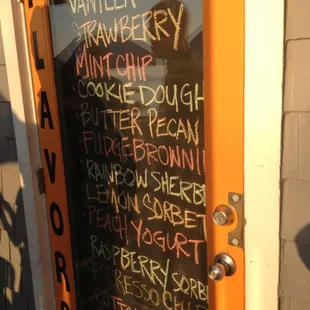 FLAVORS
VANILLA
STRAWBERRY
MINT CHIP
COOKIE DOUGH
BUTTER PECAN
FUDGE BROWNI
RAINBOW SHERB
LEMON SORBET
PEACH YOGURT
RASPBERRY SORB
ESPRESSO CH